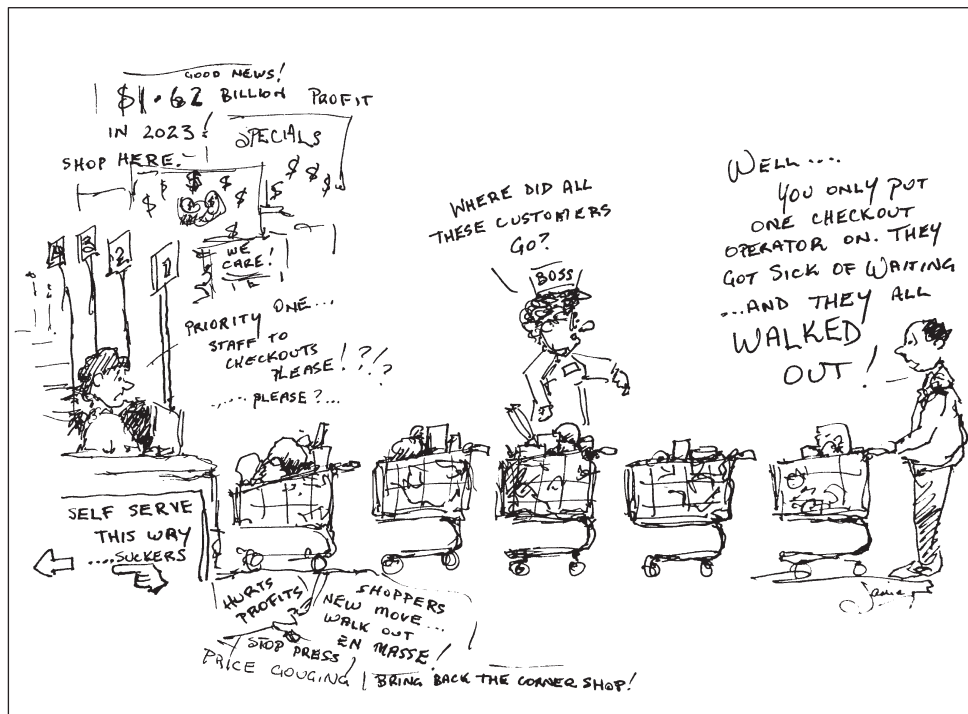 GOOD NEWS!
$1.62 BILLION PROFIT
IN 2023!
SHOP HERE.
SPECIALS
$ $ $ $ $
$ $ $ $ $
$
WE
CARE!
4 3 2 1
PRIORITY ONE...
STAFF TO
CHECKOUTS
PLEASE!?!?
..... PLEASE?...
WHERE DID ALL
THESE CUSTOMERS
GO?
BOSS
WELL....
YOU ONLY PUT
ONE CHECKOUT
OPERATOR ON. THEY
GOT SICK OF WAITING
...AND THEY ALL
WALKED
OUT!
SELF SERVE
THIS WAY
....SUCKERS
HURTS
PROFITS
SHOPPERS
NEW MOVE...
WALK OUT
EN MASSE!
STOP PRESS
PRICE GOUGING
BRING BACK THE CORNER SHOP!